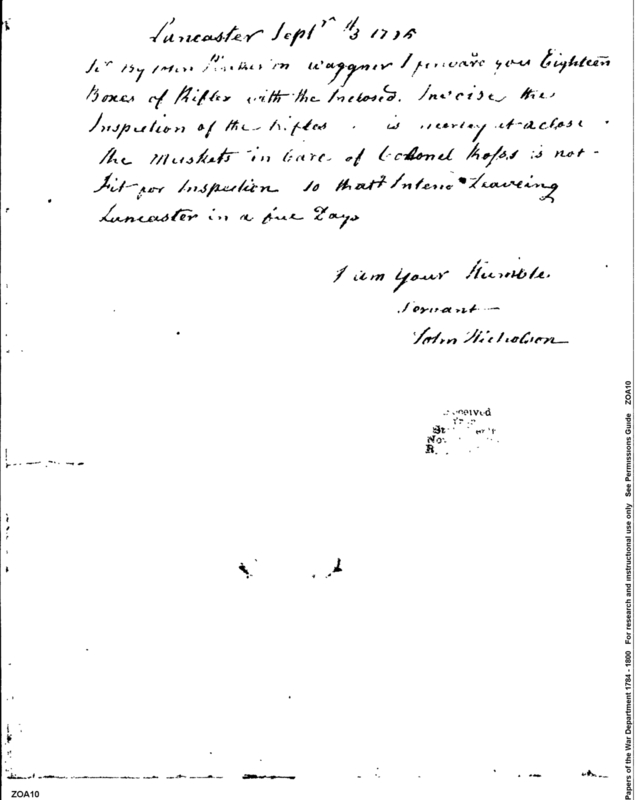 Lancaster Septr 1795
Sr By John waggner I forward you Eighteen
Boxes of Rifles with the Inclosed. Invoise, the
Inspection of the Rifles is nearley at a close
the Muskets in Care of Colonel is not
Fit for Inspection so thatt Intend Leaveing
Lancaster in a fue Days
I am your Humble
Servant
John Nicholson
ZOA10
Papers of the War Department 1784 - 1800 For research and instructional use only See Permissions Guide ZOA10